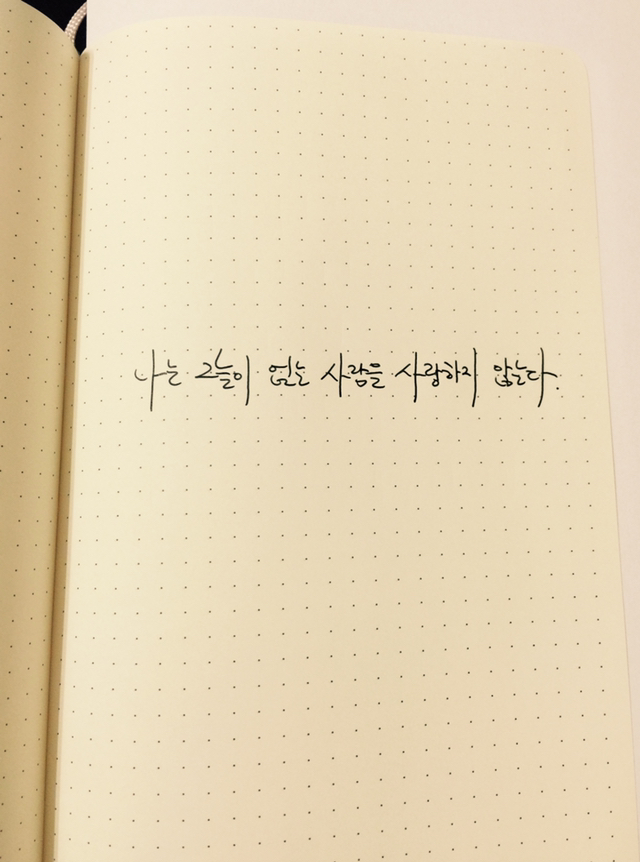 나는 그늘이 없는 사람을 사랑하지 않는다.